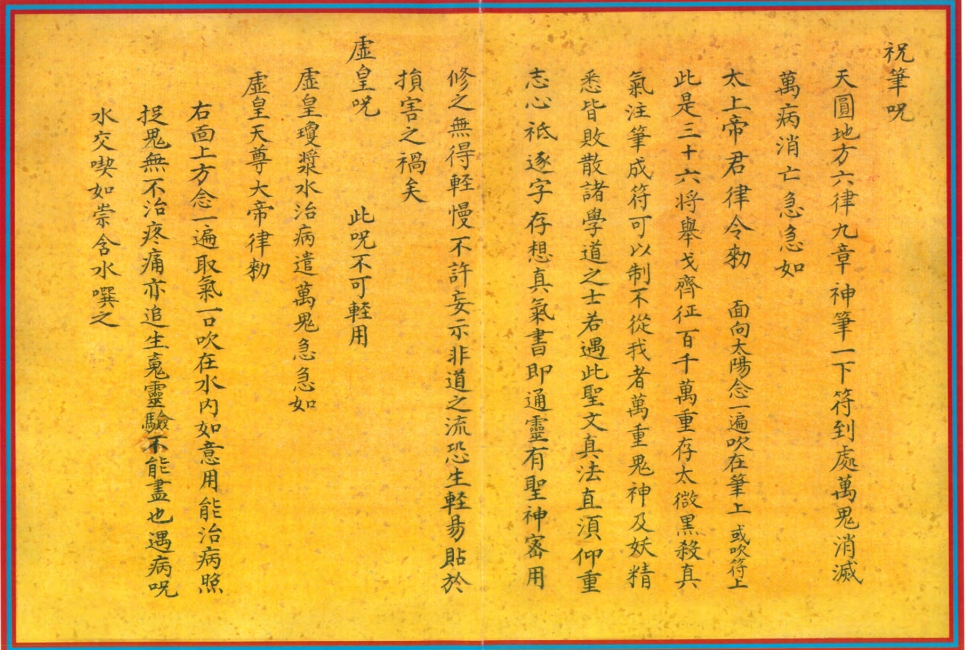 祝筆呪
天圓地方六律九章神筆一下符到處萬鬼消滅
萬病消亡急急如
太上帝君律令勑　面向太陽念一遍吹在筆上或吹符上
此是三十六将舉戈齊征百千萬重存太微黑殺真
氣注筆成符可以制不從我者萬重鬼神及妖精
悉皆敗散諸學道之士若遇此聖文真法直湏仰重
志心祗逐字存想真氣書即通靈有聖神審用
修之無得輕慢不許妄示非道之流恐生軽易貽於
損害之禍矣
虛皇呪　此呪不可軽用
虛皇瓊漿水治病遣萬鬼急急如
虛皇天尊大帝律勑
右面上方念一遍取氣一口吹在水内如意用能治病照
捉鬼無不治疼痛亦追生魂靈驗不能盡也遇病呪
水交喫如祟含水噀之